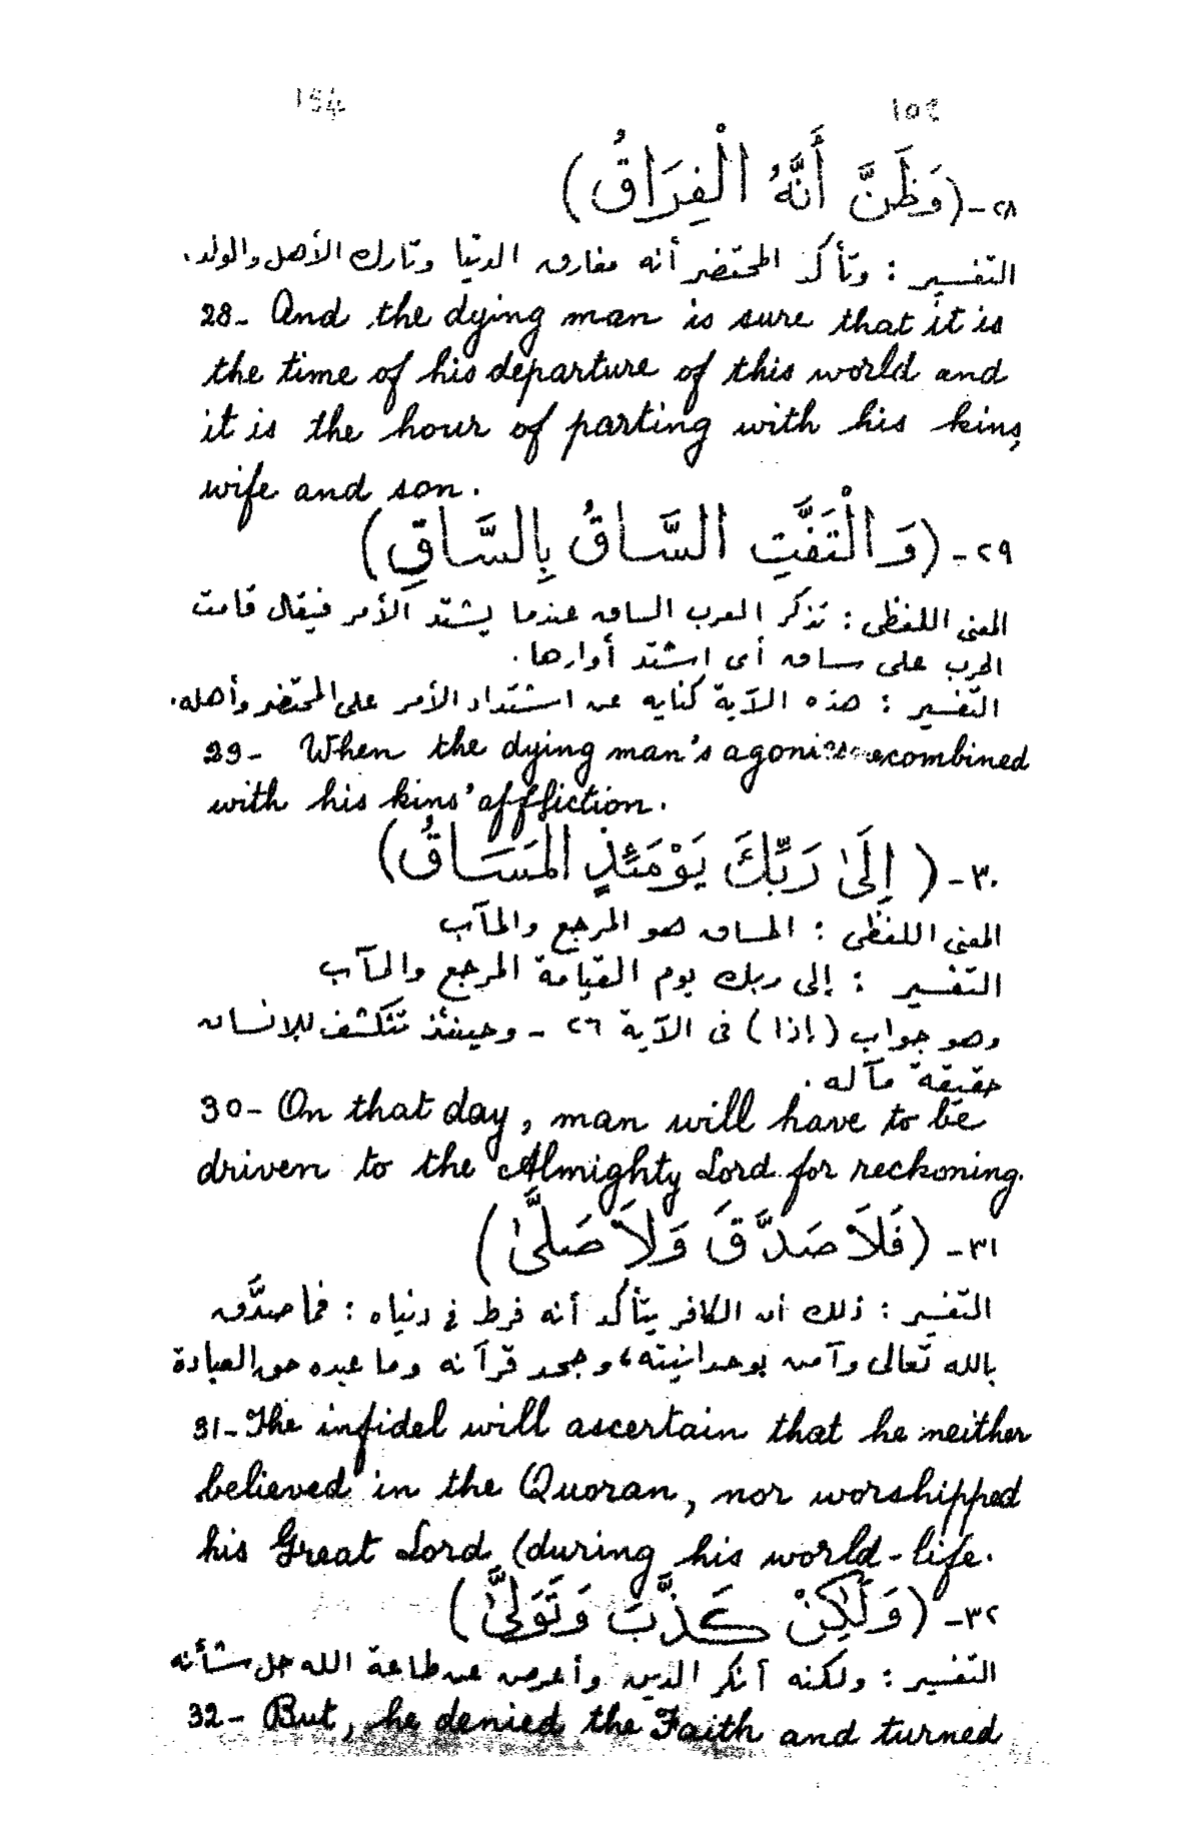 154 ١٥٤
٢٨- (وَظَنَّ أَنَّهُ الْفِرَاقُ)
التفسير : وتأكد المحتضر أنه مفارق الدنيا وتارك الأهل والولد.
28- And the dying man is sure that it is
the time of his departure of this world and
it is the hour of parting with his kins,
wife and son.
٢٩- (وَالْتَفَّتِ السَّاقُ بِالسَّاقِ)
المعنى اللفظى : تذكر العرب الساق عندما يشتد الأمر فيقال قامت
الحرب على ساق أى اشتد أوارها.
التفسير : هذه الآية كنايه عن اشتداد الأمر على المحتضر وأهله.
29- When the dying man's combined
with his kins' affliction.
٣٠- (إِلَىٰ رَبِّكَ يَوْمَئِذٍ المَسَاقُ)
المعنى اللفظى : المساق هو المرجع والمآب
التفسير : إلى ربك يوم القيامة المرجع والمآب
وهو جواب (إذا) فى الآية ٢٦ - وحينئذ تتكشف للإنسان
حقيقة مآله.
30- On that day, man will have to be
driven to the Almighty Lord for reckoning.
٣١- (فَلاَ صَدَّقَ وَلاَ صَلَّىٰ)
التفسير : ذلك أن الكافر يتأكد أنه فرط فى دنياه : فما صدَّق
بالله تعالى وآمن بوحدانيته، وجحد قرآنه وما عبده حق العبادة
31- The infidel will ascertain that he neither
believed in the Quoran, nor worshipped
his Great Lord (during his world-life.
٣٢- (وَلَٰكِنْ كَذَّبَ وَتَوَلَّىٰ)
التفسير : ولكنه أنكر الدين وأعرض عن طاعة الله جل شأنه
32- But, he denied the Faith and turned